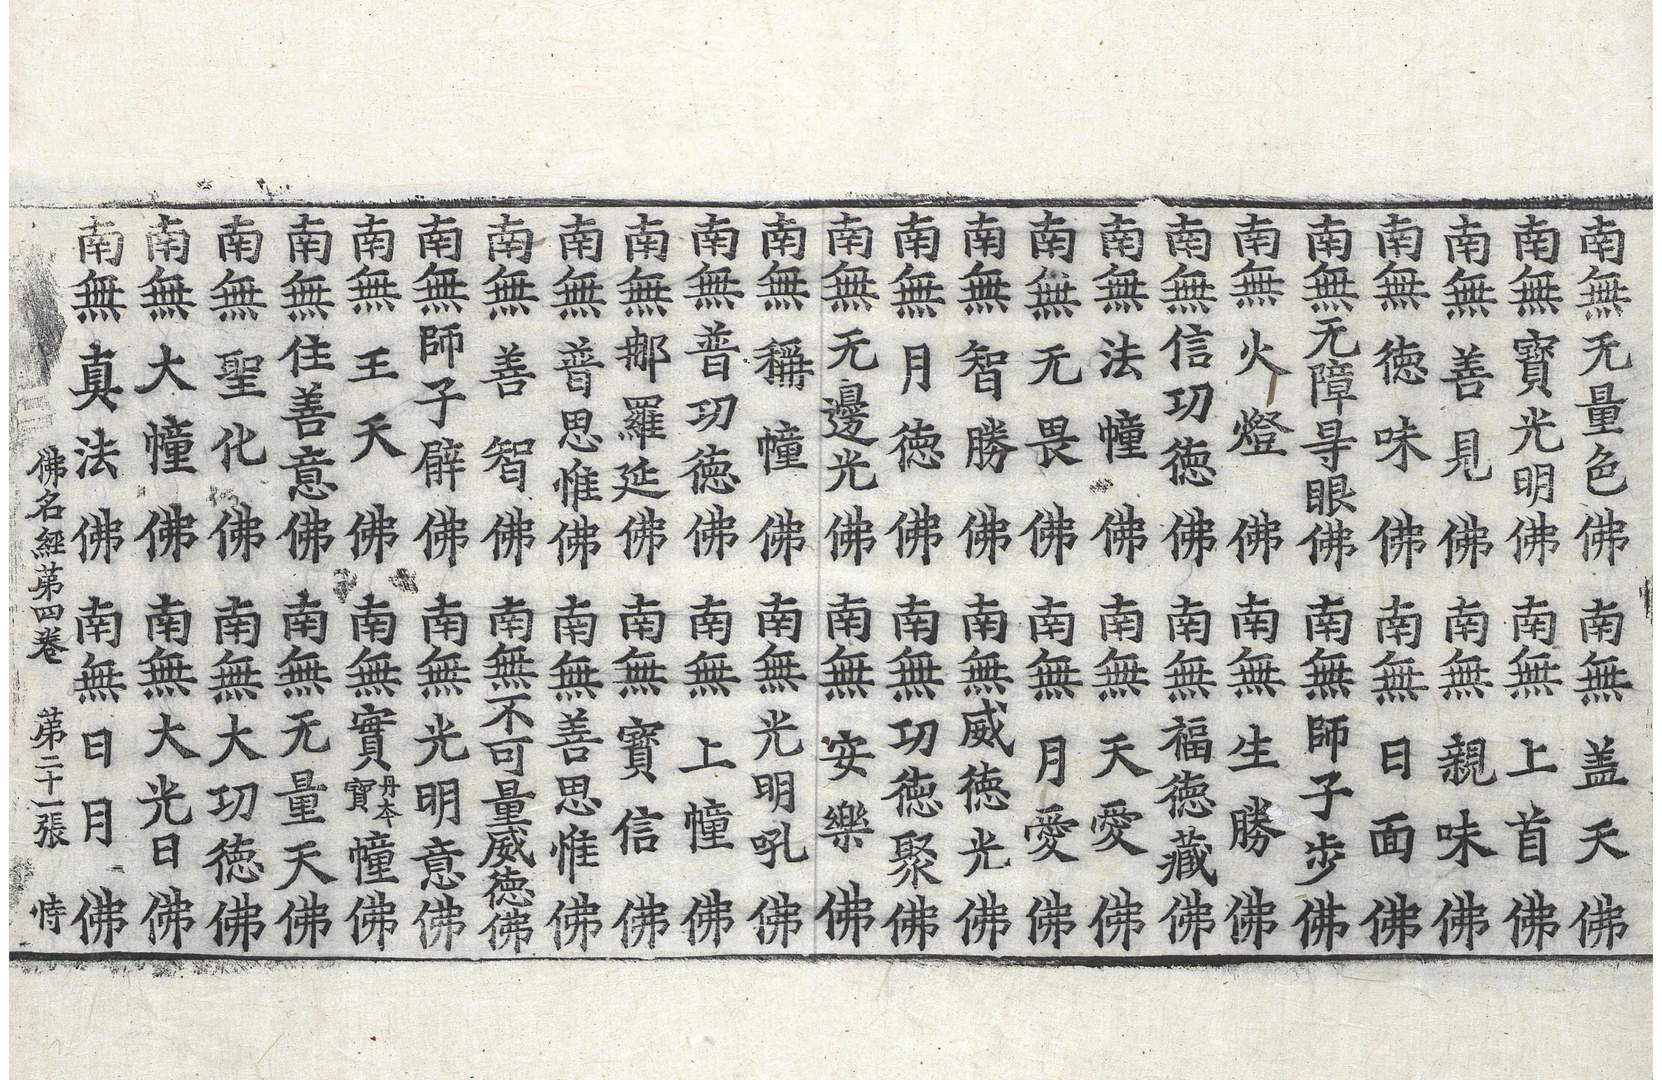 南無无量色佛南無盖天佛
南無寶光明佛南無上首佛
南無善見佛南無親味佛
南無德味佛南無日面佛
南無无障㝵眼佛南無師子步佛
南無火燈佛南無生勝佛
南無信功德佛南無福德藏佛
南無法幢佛南無天愛佛
南無无畏佛南無月愛佛
南無智勝佛南無威德光佛
南無月德佛南無功德聚佛
南無无邊光佛南無安樂佛
南無稱幢佛南無光明吼佛
南無普功德佛南無上幢佛
南無那羅延佛南無寶信佛
南無普思惟佛南無善思惟佛
南無善智佛南無不可量威德佛
南無師子臂佛南無光明意佛
南無王天佛南無實丹本寶幢佛
南無住善意佛南無无量天佛
南無聖化佛南無大功德佛
南無大幢佛南無大光日佛
南無真法佛南無日月佛
佛名經苐四卷 苐二十一張 恃